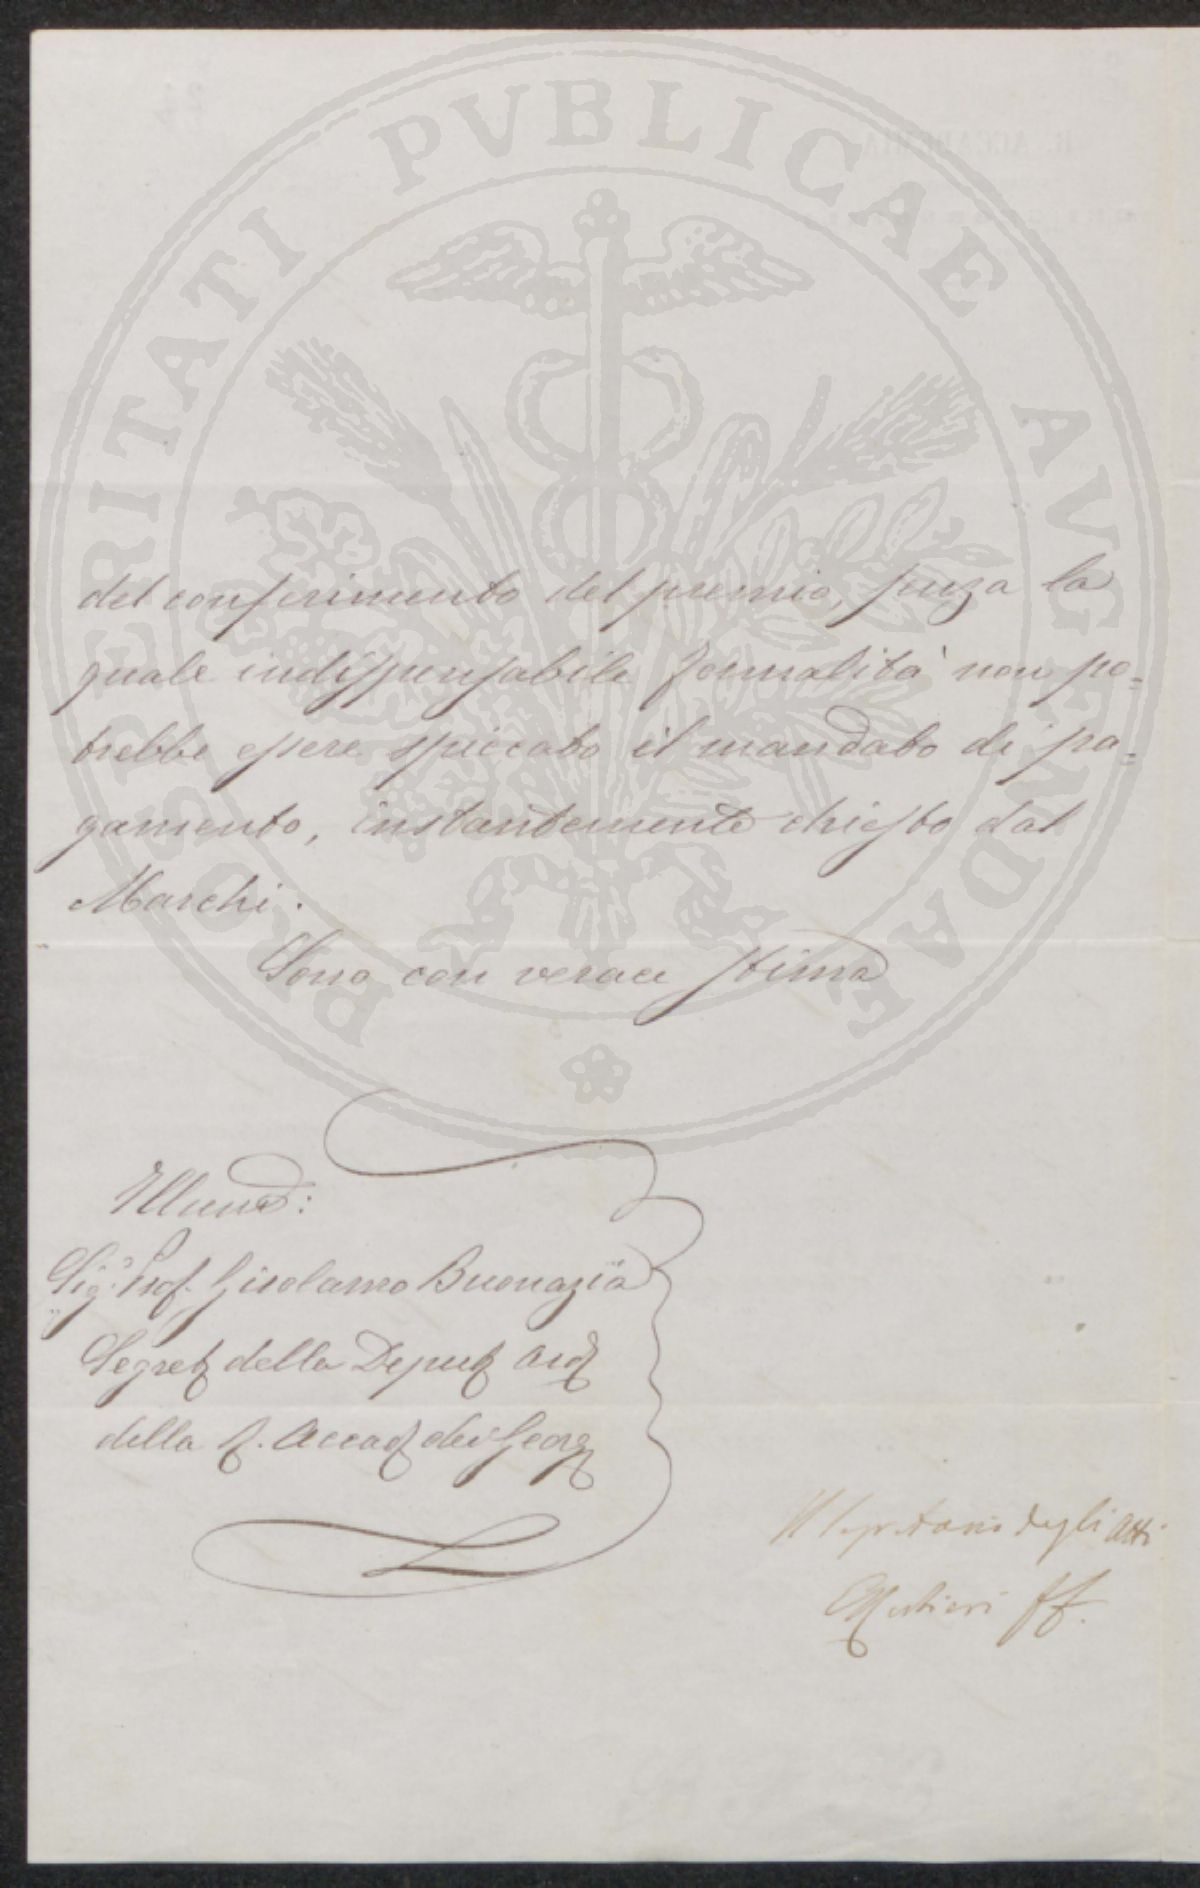 PROSPERITATI PVBLICAE AVGENDAE
R. ACCADEMIA
del conferimento del premio, senza la
quale indispensabile formalità non po=
trebbe essere spiccato il mandato di pa=
gamento, instantemente chiesto dal
Marchi.
Sono con verace stima
Sig. Prof. Girolamo Buonazia
Segret della Deput
della R. Accad dei Georg
Il Segretario degli Atti
ff.